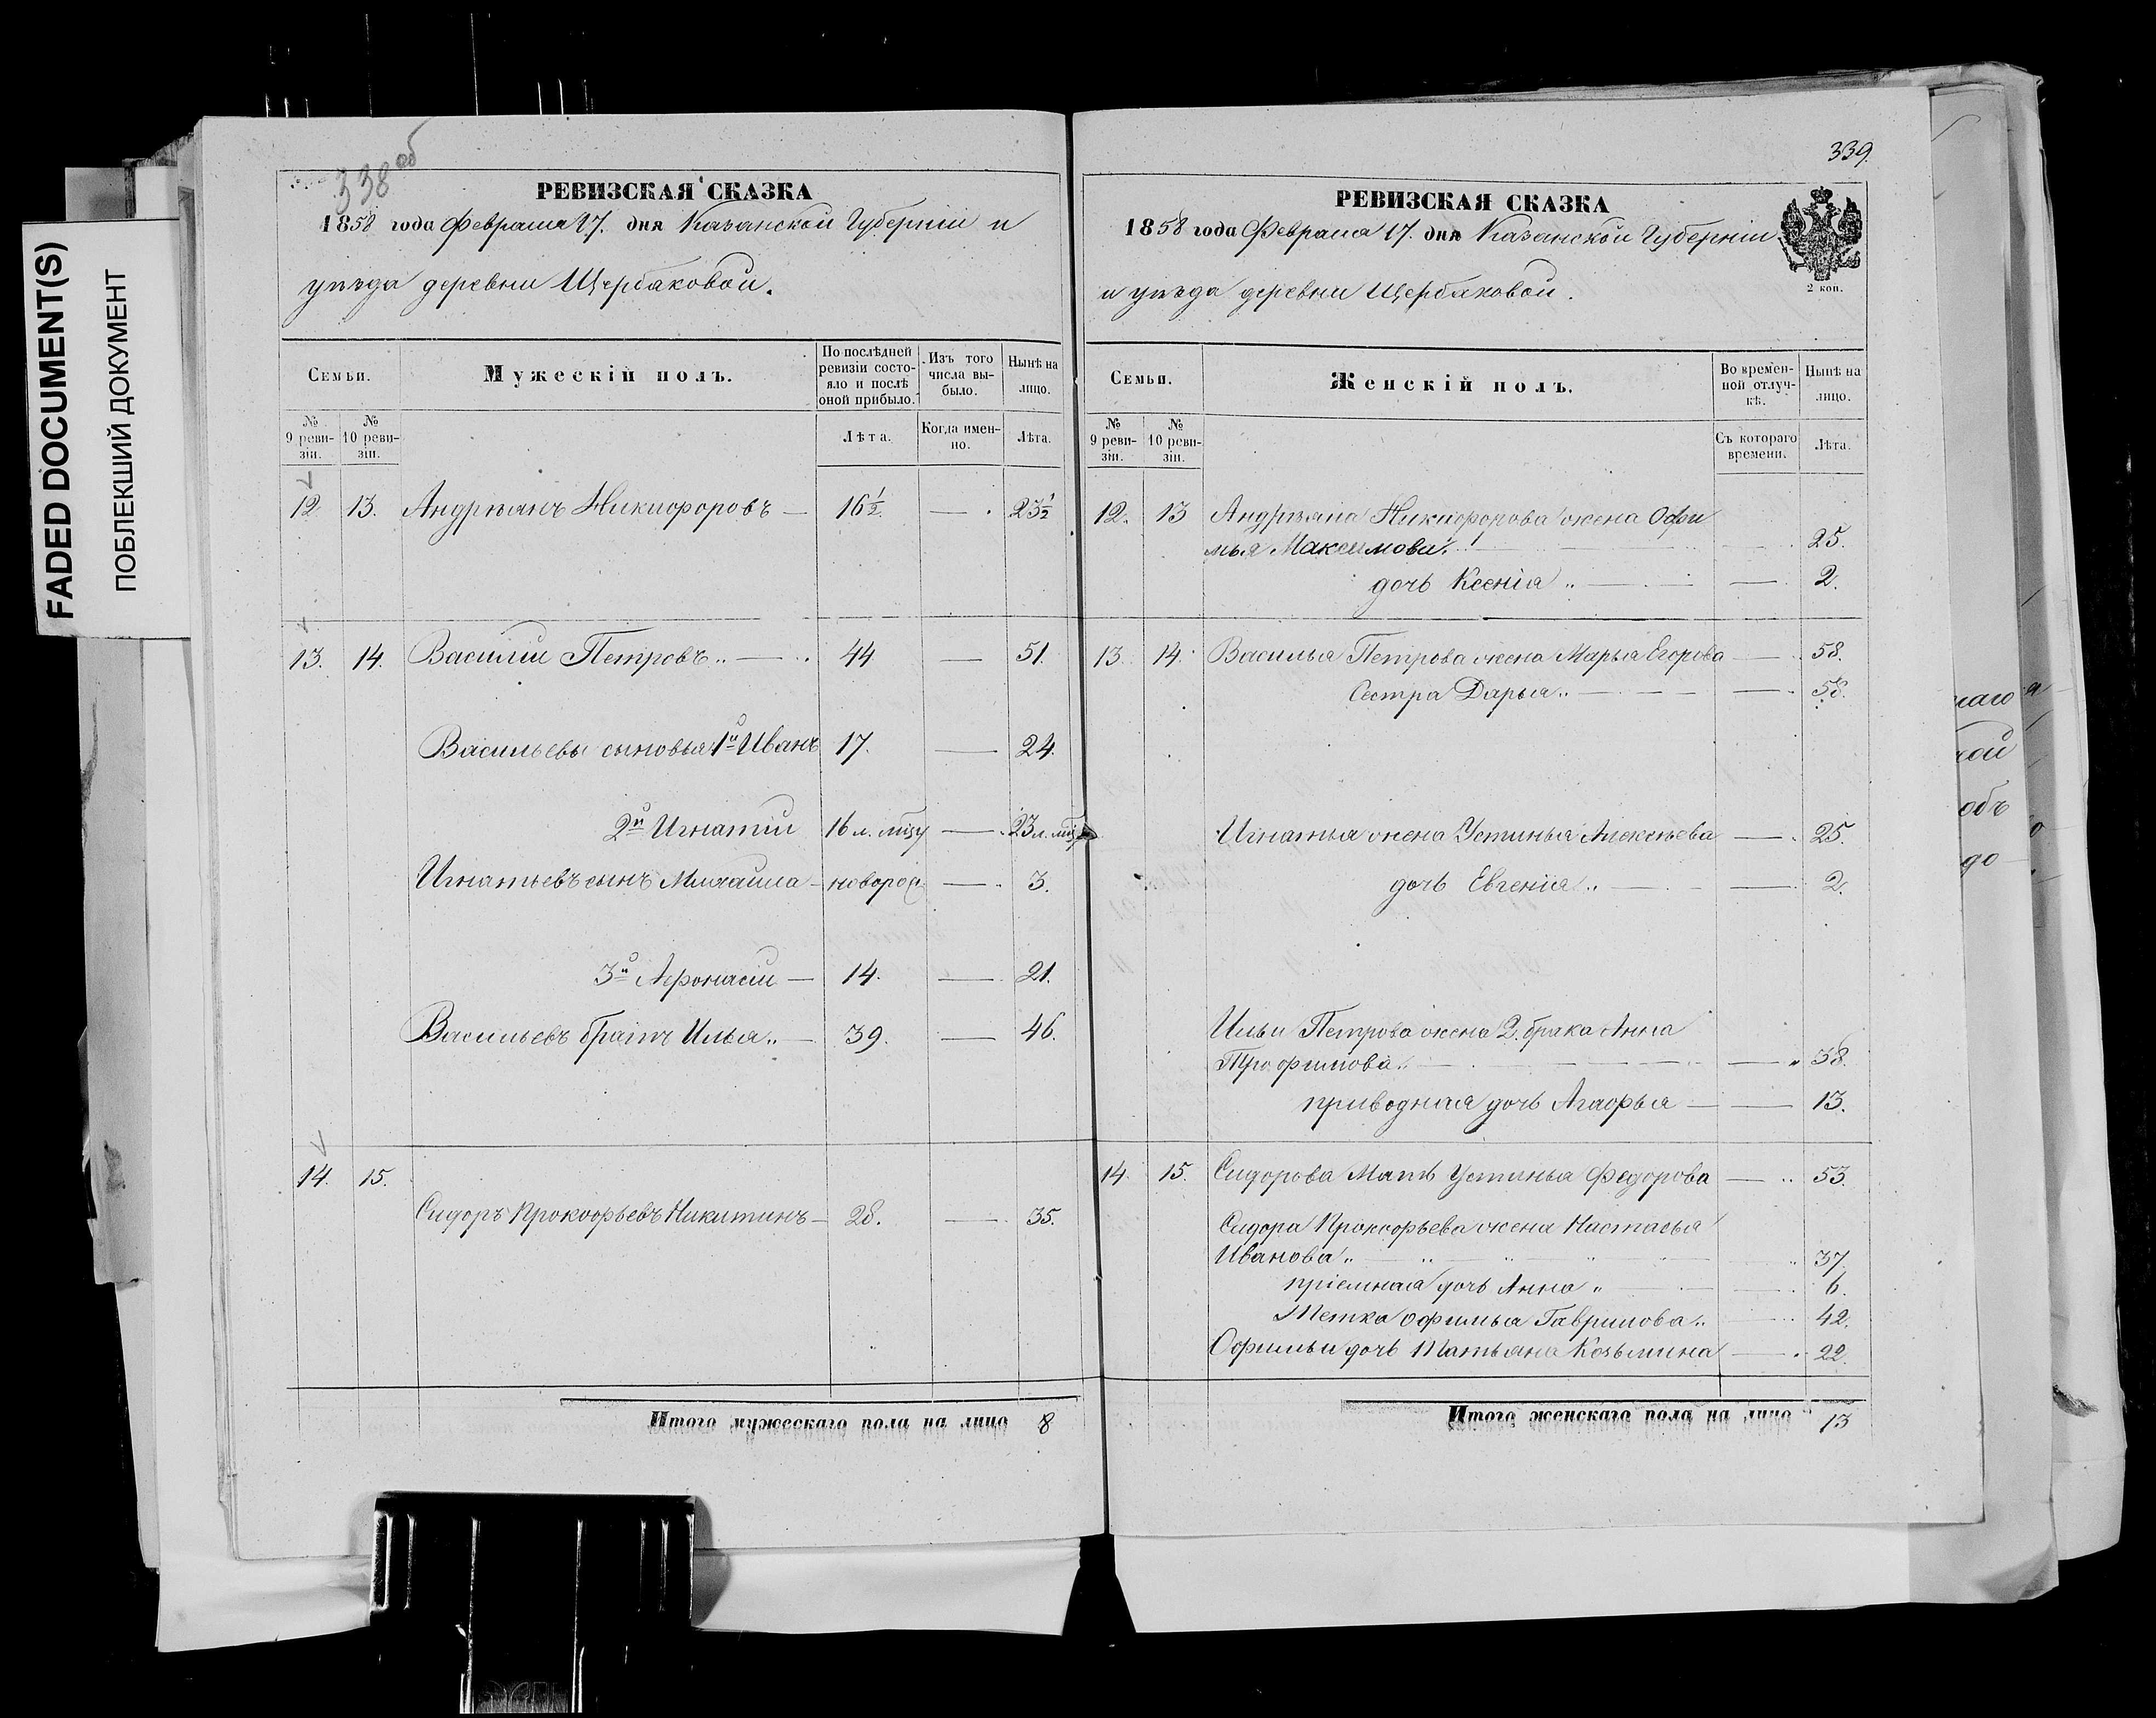 FADED DOCUMENT(S)
ПОБЛЕКШИЙ ДОКУМЕНТ
338 об
РЕВИЗСКАЯ СКАЗКА
1858 года Февраля 17. дня Казанской Губерніи и
уѣзда деревни Щербаковой.
Семьи.
Мужескій полъ.
По послѣдней ревизіи состояло и послѣ оной прибыло.
Изъ того числа выбыло.
Нынѣ на лицо.
№ 9 ревизіи.
№ 10 ревизіи.
Лѣта.
Когда именно.
Лѣта.
12 13. Андреянъ Никифоровъ — 16½ — 23½
13. 14. Василій Петровъ — 44 — 51.
Васильевы сыновья 1й Иванъ 17. — 24.
2й Игнатій 16 л. мѣзу — 23 л. мѣз
Игнатьевъ сынъ Михайла — новорož — 3.
3й Афонасій — 14. — 21.
Васильевъ братъ Илья — 39. — 46.
14. 15.
Сидоръ Прокофьевъ Никитинъ — 28. — 35.
Итого мужескаго пола на лицо 8
339.
РЕВИЗСКАЯ СКАЗКА
1858 года Февраля 17. дня Казанской Губерніи
и уѣзда деревни Щербаковой.
2 коп.
Семьи.
Женскій полъ.
Во временной отлучкѣ.
Нынѣ на лицо.
№ 9 ревизіи.
№ 10 ревизіи.
Съ котораго времени.
Лѣта.
12. 13 Андреяна Никифорова жена Офи
мья Максимова 25.
дочь Ксенія — 2.
13. 14. Василья Петрова жена Марья Егорова — 58.
Сестра Дарья — 58.
Игнатья жена Устинья Алексѣева — 25.
дочь Евгенія — 2.
Ильи Петрова жена 2. брака Анна
Трофимова — 38.
приводная дочь Агафья — 13.
14. 15. Сидорова Мать Устинья Федорова — 53.
Сидора Прокофьева жена Настасья
Иванова 37.
пріемная дочь Анна 6.
Тетка Офимья Гаврилова 42.
Офимьи дочь Татьяна Козьмина — 22.
Итого женскаго пола на лицо 13